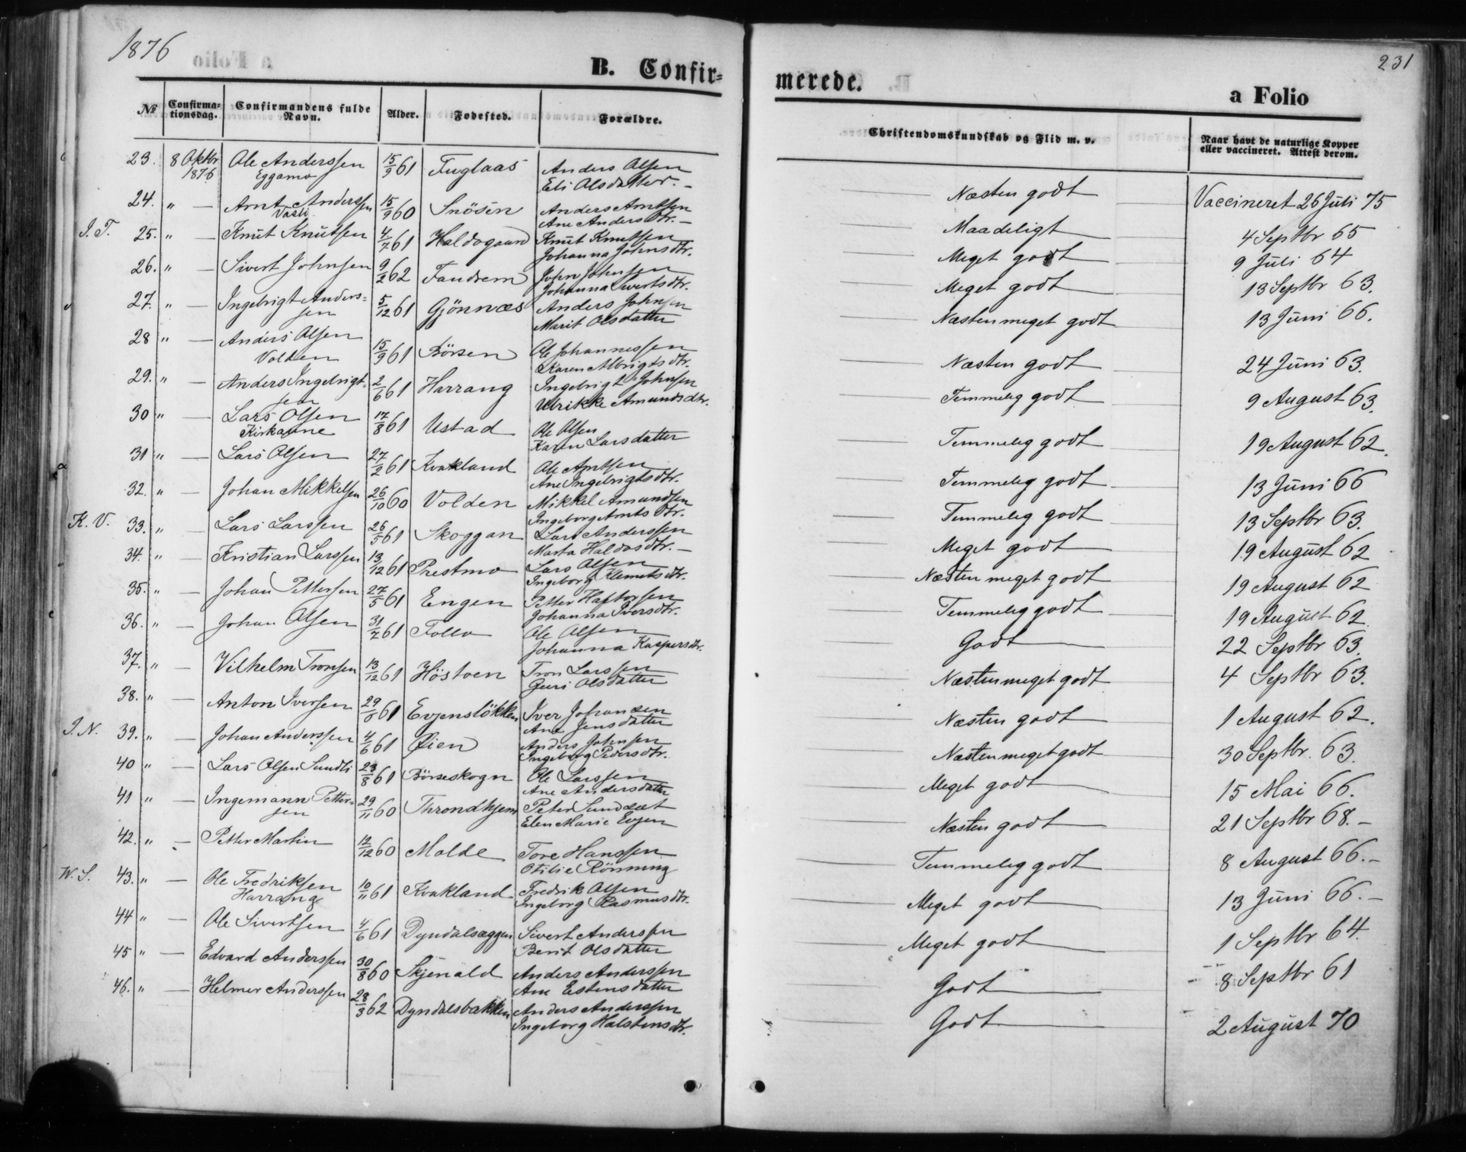 1876
B. Confir-
№ Confirma-tionsdag. Confirmandens fulde Navn. Alder. Fødested. Forældre.
23. 8 Oktbr 1876 Ole Anderssen Eggamo 15/9 61 Fuglaas Anders Olsen
Eli Olsdatter. —
24. „ — Arnt Anderssen 15/9 60 Snösen Anders Arntsen
Ane Andersdtr. —
I. T. 25. „ — Knut Knutsen 4/7 61 Haldogaard Knut Knutsen
Johanna Johnsdtr.
26. „ — Sivert Johnsen 9/2 62 Fandrem John Johnsen
Johanna Sivertsdtr.
27. „ — Ingebrigt Anders-sen 5/12 61 Gjönnæs Anders Johnsen
Marit Olsdatter
28 „ — Anders Olsen Volden 15/9 61 Börsen Ole Johannessen
Karen Albrigtsdtr.
29. „ — Anders Ingebrigt-sen 2/6 61 Harrang Ingebrigt Johnsen
Ulrikke Amundsdtr.
30 „ — Lars Olsen Kirkaune 17/8 61 Ustad Ole Olsen
Karen Larsdatter
31 „ — Lars Olsen 27/2 61 Kvakland Ole Arntsen
Ane Ingebrigtsdtr.
32. „ — Johan Mikkelsen 26/10 60 Volden Mikkel Amundsen
Ingeborg Arntsdtr.
K. V. 33. „ — Lars Larssen 26/5 61 Skoggan Lars Anderssen
Marta Haldosdtr. —
34. „ — Kristian Larssen 13/12 61 Prestmo Lars Olsen
Ingeborg Klemetsdtr.
35. „ — Johan Pettersen 27/5 61 Engen Petter Haftorsen
Johanna Iversdtr.
36. „ — Johan Olsen 31/2 61 Follo Ole Olsen
Johanna Kaspersdtr.
37. „ — Vilhelm Tronsen 13/12 61 Höstoen Tron Larssen
Guri Olsdatter
38. „ — Anton Iversen 29/6 61 Evjenslökken Iver Johansen
Ane Jensdatter
I. N. 39. „ — Johan Anderssen 4/6 61 Øien Anders Johnsen
Ingeborg Pedersdtr.
40 „ — Lars Olsen Sundli 23/8 61 Börseskogn Ole Larssen
Ane Andersdatter
41 „ — Ingemann Petter-sen 29/11 60 Throndhjem Peter Sundset
Elen Marie Evjen
42. „ — Petter Martin 12/12 60 Molde Tore Hanssen
Otilie Rönning
W. S. 43. „ — Ole Fredriksen Harrang 10/11 61 Kvakland Fredrik Olsen
Ingeborg Rasmusdtr.
44 „ — Ole Sivertsen 4/6 61 Dyndalsæggen Sivert Anderssen
Berit Olsdatter
45 „ — Edvard Anderssen 30/8 60 Skjenald Anders Anderssen
Ane Estensdatter
46. „ — Helmer Anderssen 28/3 62 Dyndalsbakken Anders Anderssen
Ingeborg Halstensdtr.
231
merede.
a Folio
Christendomskundskab og Flid m. v. Naar havt de naturlige Kopper eller vaccineret. Attest derom.
Næsten godt Vaccineret 26 Juli 75
Maadeligt 4 Septbr 65
Meget godt 9 Juli 64
Meget godt 13 Septbr 63.
Næsten meget godt 13 Juni 66.
Næsten godt 24 Juni 63.
Temmelig godt 9 August 63.
Temmelig godt 19 August 62.
Temmelig godt 13 Juni 66
Temmelig godt 13 Septbr 63.
Meget godt 19 August 62
Næsten meget godt 19 August 62
Temmelig godt 19 August 62.
Godt 22 Septbr 63.
Næsten meget godt 4 Septbr 63.
Næsten godt 1 August 62.
Næsten meget godt 30 Septbr. 63.
Meget godt 15 Mai 66.
Næsten godt 21 Septbr 68. —
Temmelig godt 8 August 66. —
Meget godt 13 Juni 66. —
Meget godt 1 Septbr 64.
Godt 8 Septbr 61
Godt 2 August 70